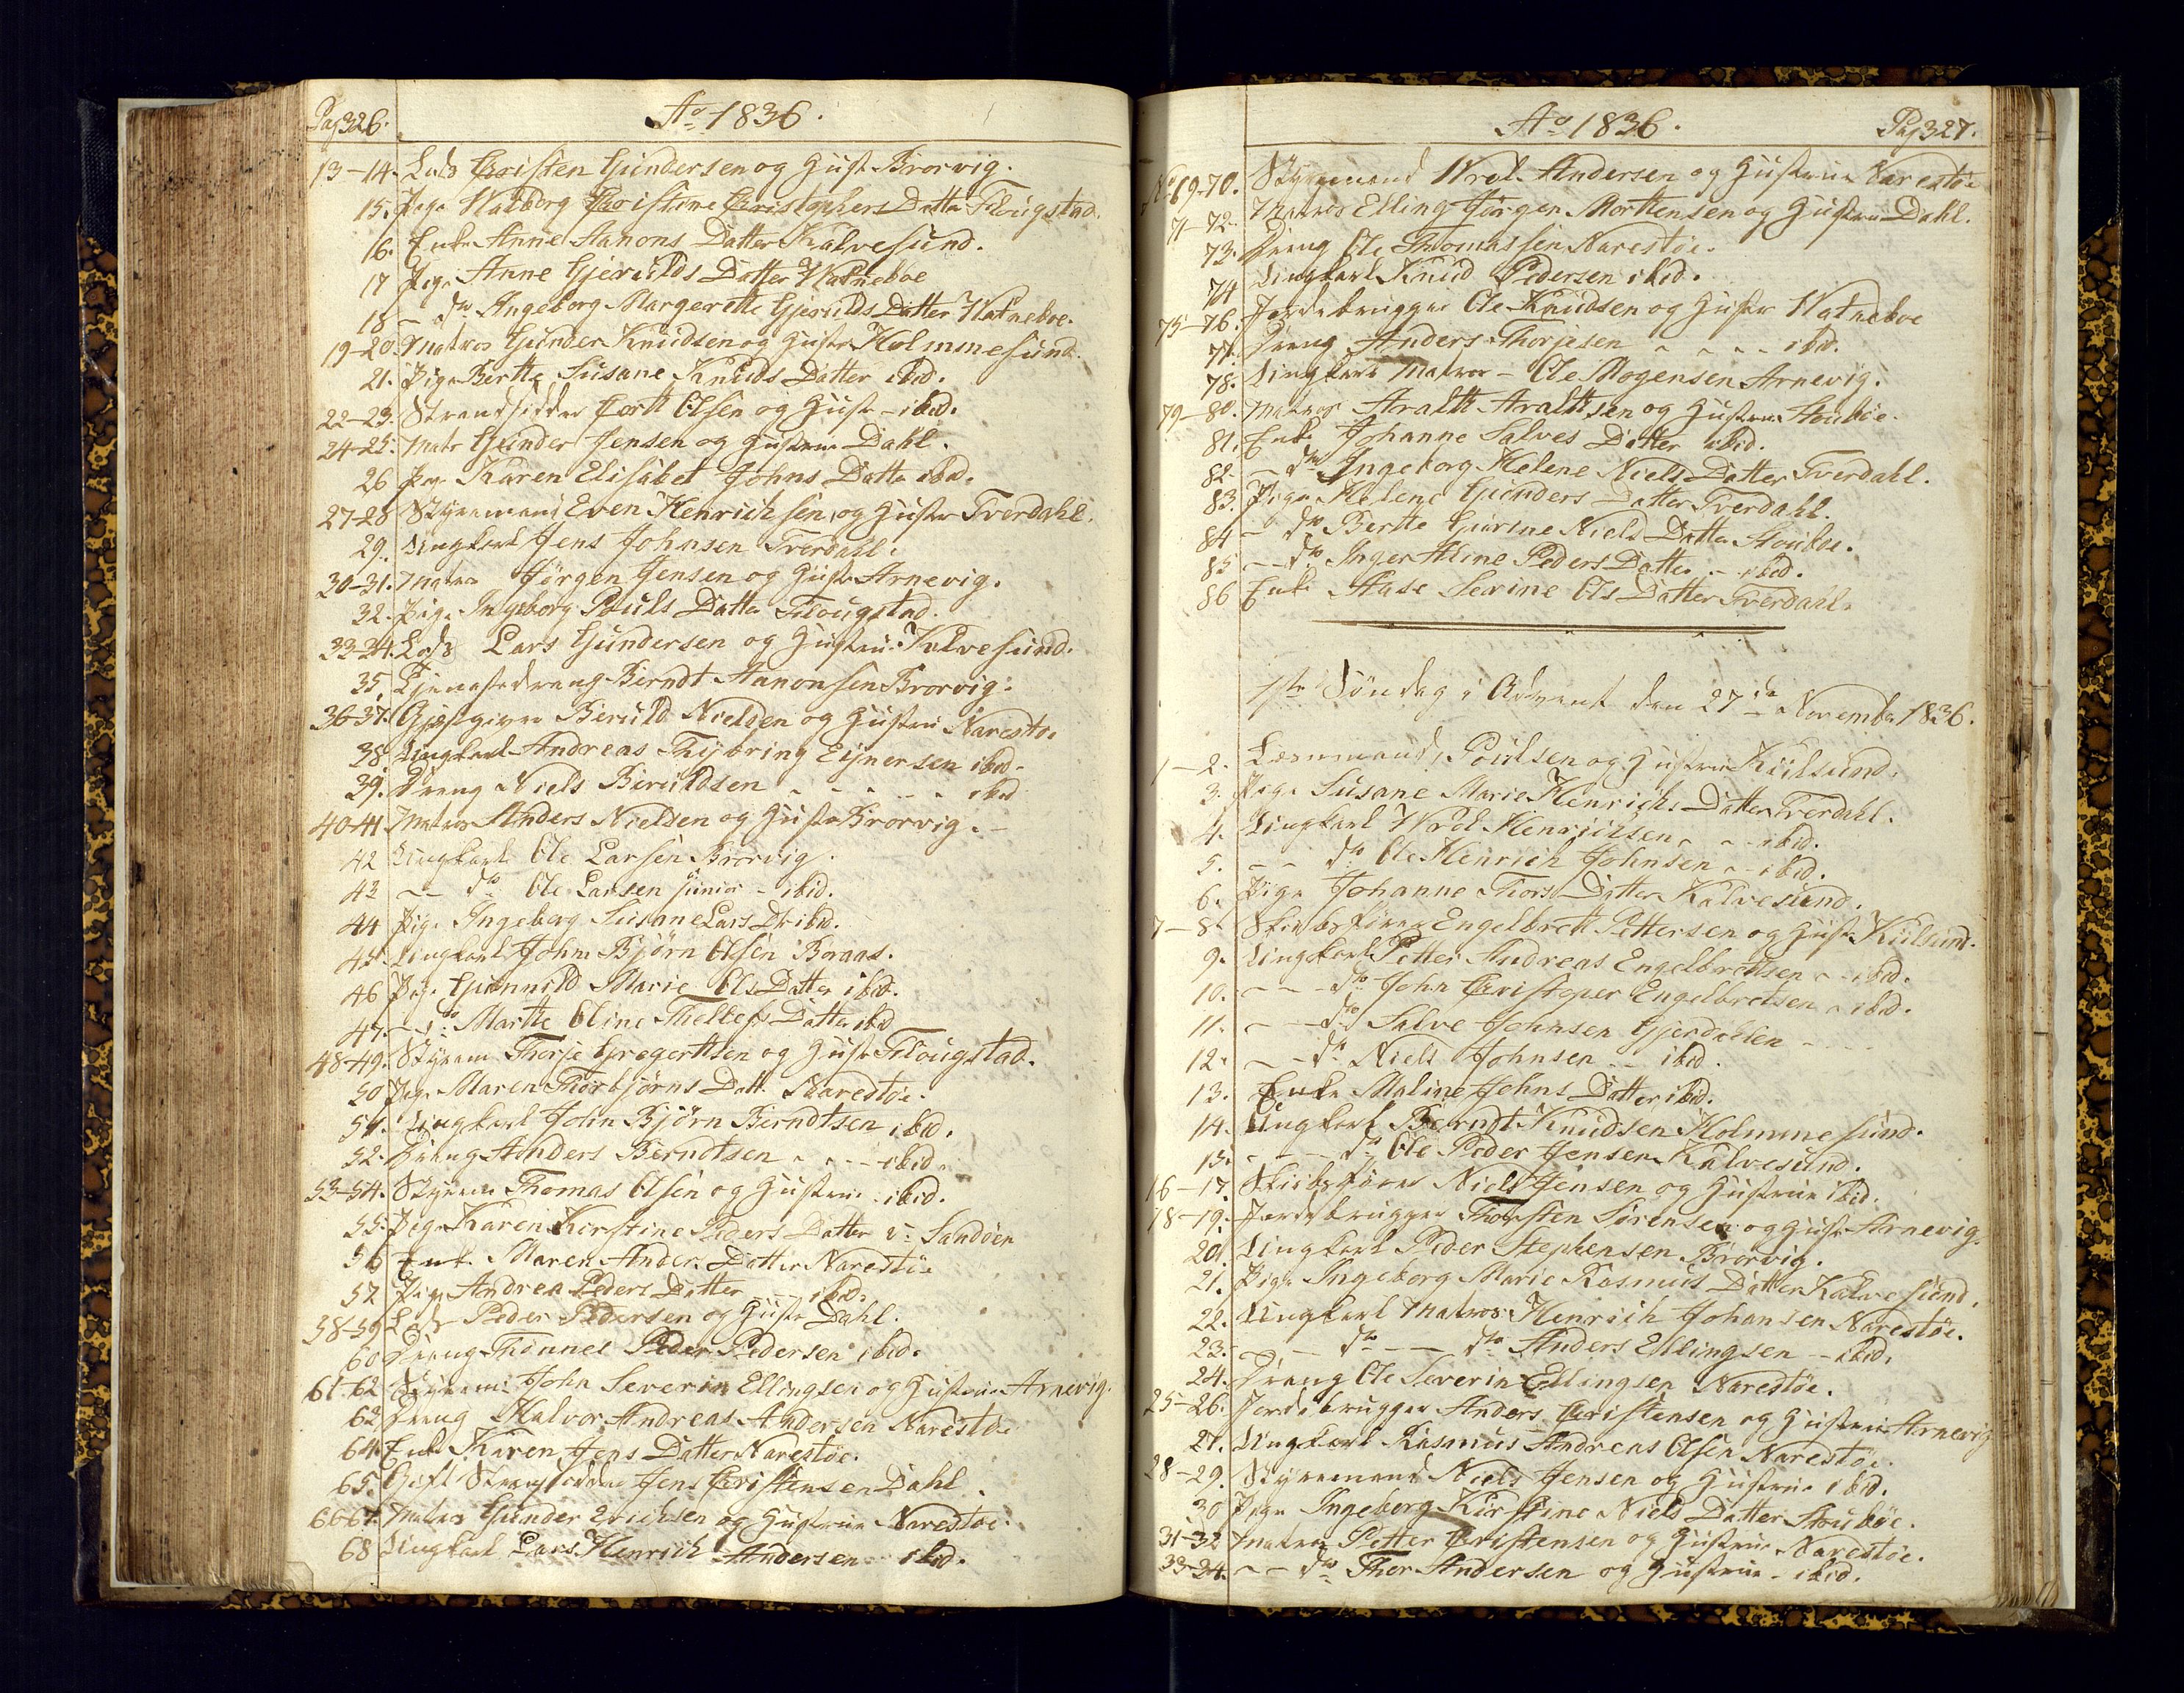 Pag 326.
Ao 1836.
13-14. Lods Christen Gundersen og Hust Brorvig.
15. Pige Walborg Christine Christophers Datter Flougstad.
16. Enke Anne Aanons Datter Kalvesund.
17 Pige Anne Gjerulds Datter Watneboe
18 - do Angeborg Margerette Gjerulds Datter Watneboe.
19-20. Matros Gunder Knudsen og Hustr Holmmesund.
21. Pige Berthe Susane Knuds Datter ibid.
22-23. Strandsidder Cort Olsen og Hust - ibid.
24-25. Matr Gunder Jensen og Hustrue Dahl.
26 Pige Karen Elisabet Johns Datter ibid.
27-28 Styrmand Even Henrichsen og Hustr Tverdahl.
29. Ungkarl Jens Johnsen Tverdahl.
30-31. Matros Jörgen Jensen og Hustr Arnevig.
32. Pige Ingeborg Pouls Datter Flougstad.
33-34. Lods Lars Gundersen og Hustrue Kalvesund.
35. Tjenestedreng Berndt Aanonsen Brorvig.
36-37. Gjæstgiver Beruld Nielsen og Hustrue Narestoe
38 Ungkarl Andreas Thybring Ejnersen ibid.
39. Dreng Niels Beruldsen - - - - ibid
40-41. Matros Anders Nielsen og Hustr Brorvig. -
42 Ungkarl Ole Larsen Brorvig.
43 -- do Ole Larsen junior - ibid.
44 Pige Ingeborg Susane Lars Dr ibid.
45. Ungkarl John Bjørn Olsen Boraas.
46 Pige Gunnild Marie Ols Datter ibid.
47. - do Marthe Oline Thellefs Datter ibid
48-49. Styrm Thorje Gregertsen og Hustr Flougstad.
50 Pige Maren Thorbjørns Datt. Narestöe.
51. Ungkarl John Bjørn Berndtsen ibid.
52. Dreng Anders Berndtsen - - - ibid.
53-54. Styrm Thomas Olsen og Hustrue - ibid.
55. Pige Karen Kirstine Peders Datter v. Sandöen
56 Enke Maren Anders Datter Narestöe
57 Pige Andrea Peders Datter -- ibid.
58-59 Lods Peder Pedersen og Hustr Dahl.
60 Dreng Thönnes Peder Pedersen ibid.
61-62 Styrm John Severin Ellingsen og Hustrue Arnevig.
63 Dreng Halvor Andreas Andersen Narestöe
64. Enke Karen Jens Datter Narestöe.
65. Gift Strandsidder Jens Christensen Dahl.
66-67. Matros Gunder Erichsen og Hustrue Narestöe.
68 Ungkarl Lars Henrich Andersen ibid.
Ao 1836.
Pag 327.
No 69-70. Styrmand Wrol Andersen og Hustrue Narestöe
71-72. Matros Elling Jørgen Morttensen og Hustrue Dahl.
73. Dreng Ole Thomassen Narestöe.
74 Ungkarl Knud Pedersen ibid.
75-76. Jordebrugger Ole Knudsen og Hustr Watneboe
77. Dreng Anders Thorjesen - - - ibid.
78. Ungkarl Matros - Ole Mogensen Arnevig.
79-80. Matros Aralth Aralthsen og Hustrue Stouböe.
81. Enke Johanne Salves Datter ibid.
82. - do Ingeborg Helene Niels Datter Tverdahl.
83. Pige Helene Gunders Datter Tverdahl.
84 - do Berthe Gurine Niels Datter Stouboe.
85 -- do Inger Aline Peders Datter - ibid.
86 Enke Aase Serine Ols Datter Tverdahl.
1ste Søndag i Advent den 27de November 1836.
1-2. Lænsmand Poulsen og Hustrue Kiilsund.
3. Pige Susane Marie Henrichs Datter Tverdahl.
4. Ungkarl Wrol Henrichsen - - ibid.
5. -- do Ole Henrich Johnsen - ibid.
6. Pige Johanne Thors Datter Kalvesund.
7-8 Skibsfører Engelbrett Pettersen og Hustr Kiilsund.
9. Ungkarl Petter Andreas Engelbrettsen - ibid.
10. --- do John Christoper Engelbretsen - ibid.
11. -- do Salve Johnsen Gjerdalen - - -
12. -- do Niels Johnsen -- ibid.
13. Enke Maline Johns Datter ibid.
14. Ungkarl Berndt Knudsen Holmmesund.
15. --- do Ole Peder Jensen Kalvesund.
16-17. Skibsfører Niels Jensen og Hustrue ibid.
18-19. Jordebrugger Thorsten Sørensen og Hustr Arnevig.
20. Ungkarl Peder Stephensen Brorvig.
21. Pige Ingeborg Marie Rasmus Datter Kalvesund.
22. Ungkarl Matros Henrich Johansen Narestöe.
23. -- do -- do Anders Ellingsen - ibid.
24. Dreng Ole Severin Ellingsen Narestöe.
25-26. Jordebrugger Anders Christensen og Hustrue Arnevig
27. Ungkarl Rasmus Andreas Olsen Narestöe.
28-29. Styrmand Niels Jensen og Hustrue ibid.
30 Pige Ingeborg Kirstine Niels Datter Stouböe.
31-32 Matros Petter Christensen og Hustrue Narestöe.
33-34. -- do Thor Andersen og Hustrue - ibid.